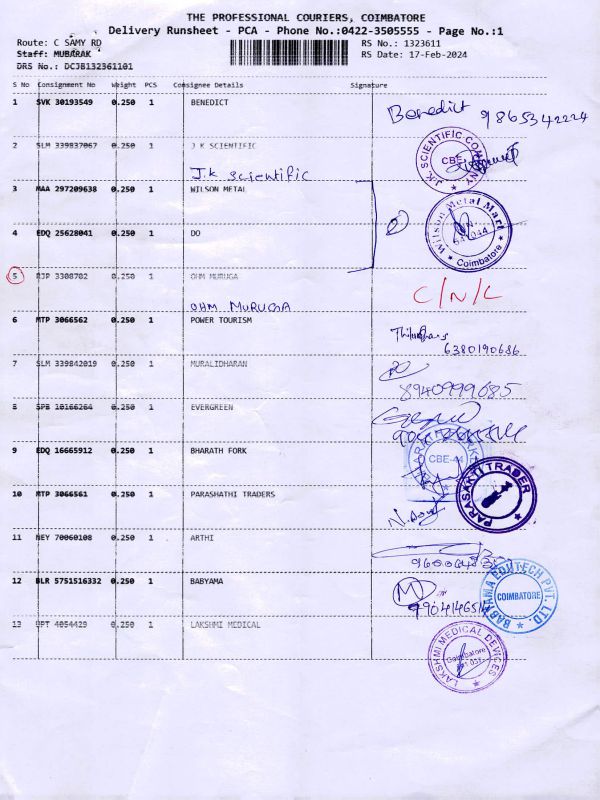 THE PROFESSIONAL COURIERS, COIMBATORE
Delivery Runsheet - PCA - Phone No.:0422-3505555 - Page No.:1
Route: C SAMY RD RS No.: 1323611
Staff: MUBARAK RS Date: 17-Feb-2024
DRS No.: DCJB132361101
S No Consignment No Weight PCS Consignee Details Signature
1 SVK 30193549 0.250 1 BENEDICT
Benedict 9865342224
2 SLM 339837067 0.250 1 J K SCIENTIFIC
J.K scientific
J.K. SCIENTIFIC COMPANY CBE
3 MAA 297209638 0.250 1 WILSON METAL
Wilson Metal Mart Coimbatore
4 EDQ 25628041 0.250 1 DO
5 RJP 3308702 0.250 1 OHM MURUGA
C/N/L
OHM MURUGA
6 MTP 3066562 0.250 1 POWER TOURISM
6380190686
7 SLM 339842019 0.250 1 MURALIDHARAN
8940999685
8 SPB 10166264 0.250 1 EVERGREEN
9 EDQ 16665912 0.250 1 BHARATH FORK
CBE-44
10 MTP 3066561 0.250 1 PARASHATHI TRADERS
PARASAKTI TRADER
11 NEY 70060108 0.250 1 ARTHI
12 BLR 5751516332 0.250 1 BABYAMA
BABYANA EDUTECH PVT. LTD. COIMBATORE
13 UPT 4054429 0.250 1 LAKSHMI MEDICAL
LAKSHMI MEDICAL DEVICES Coimbatore